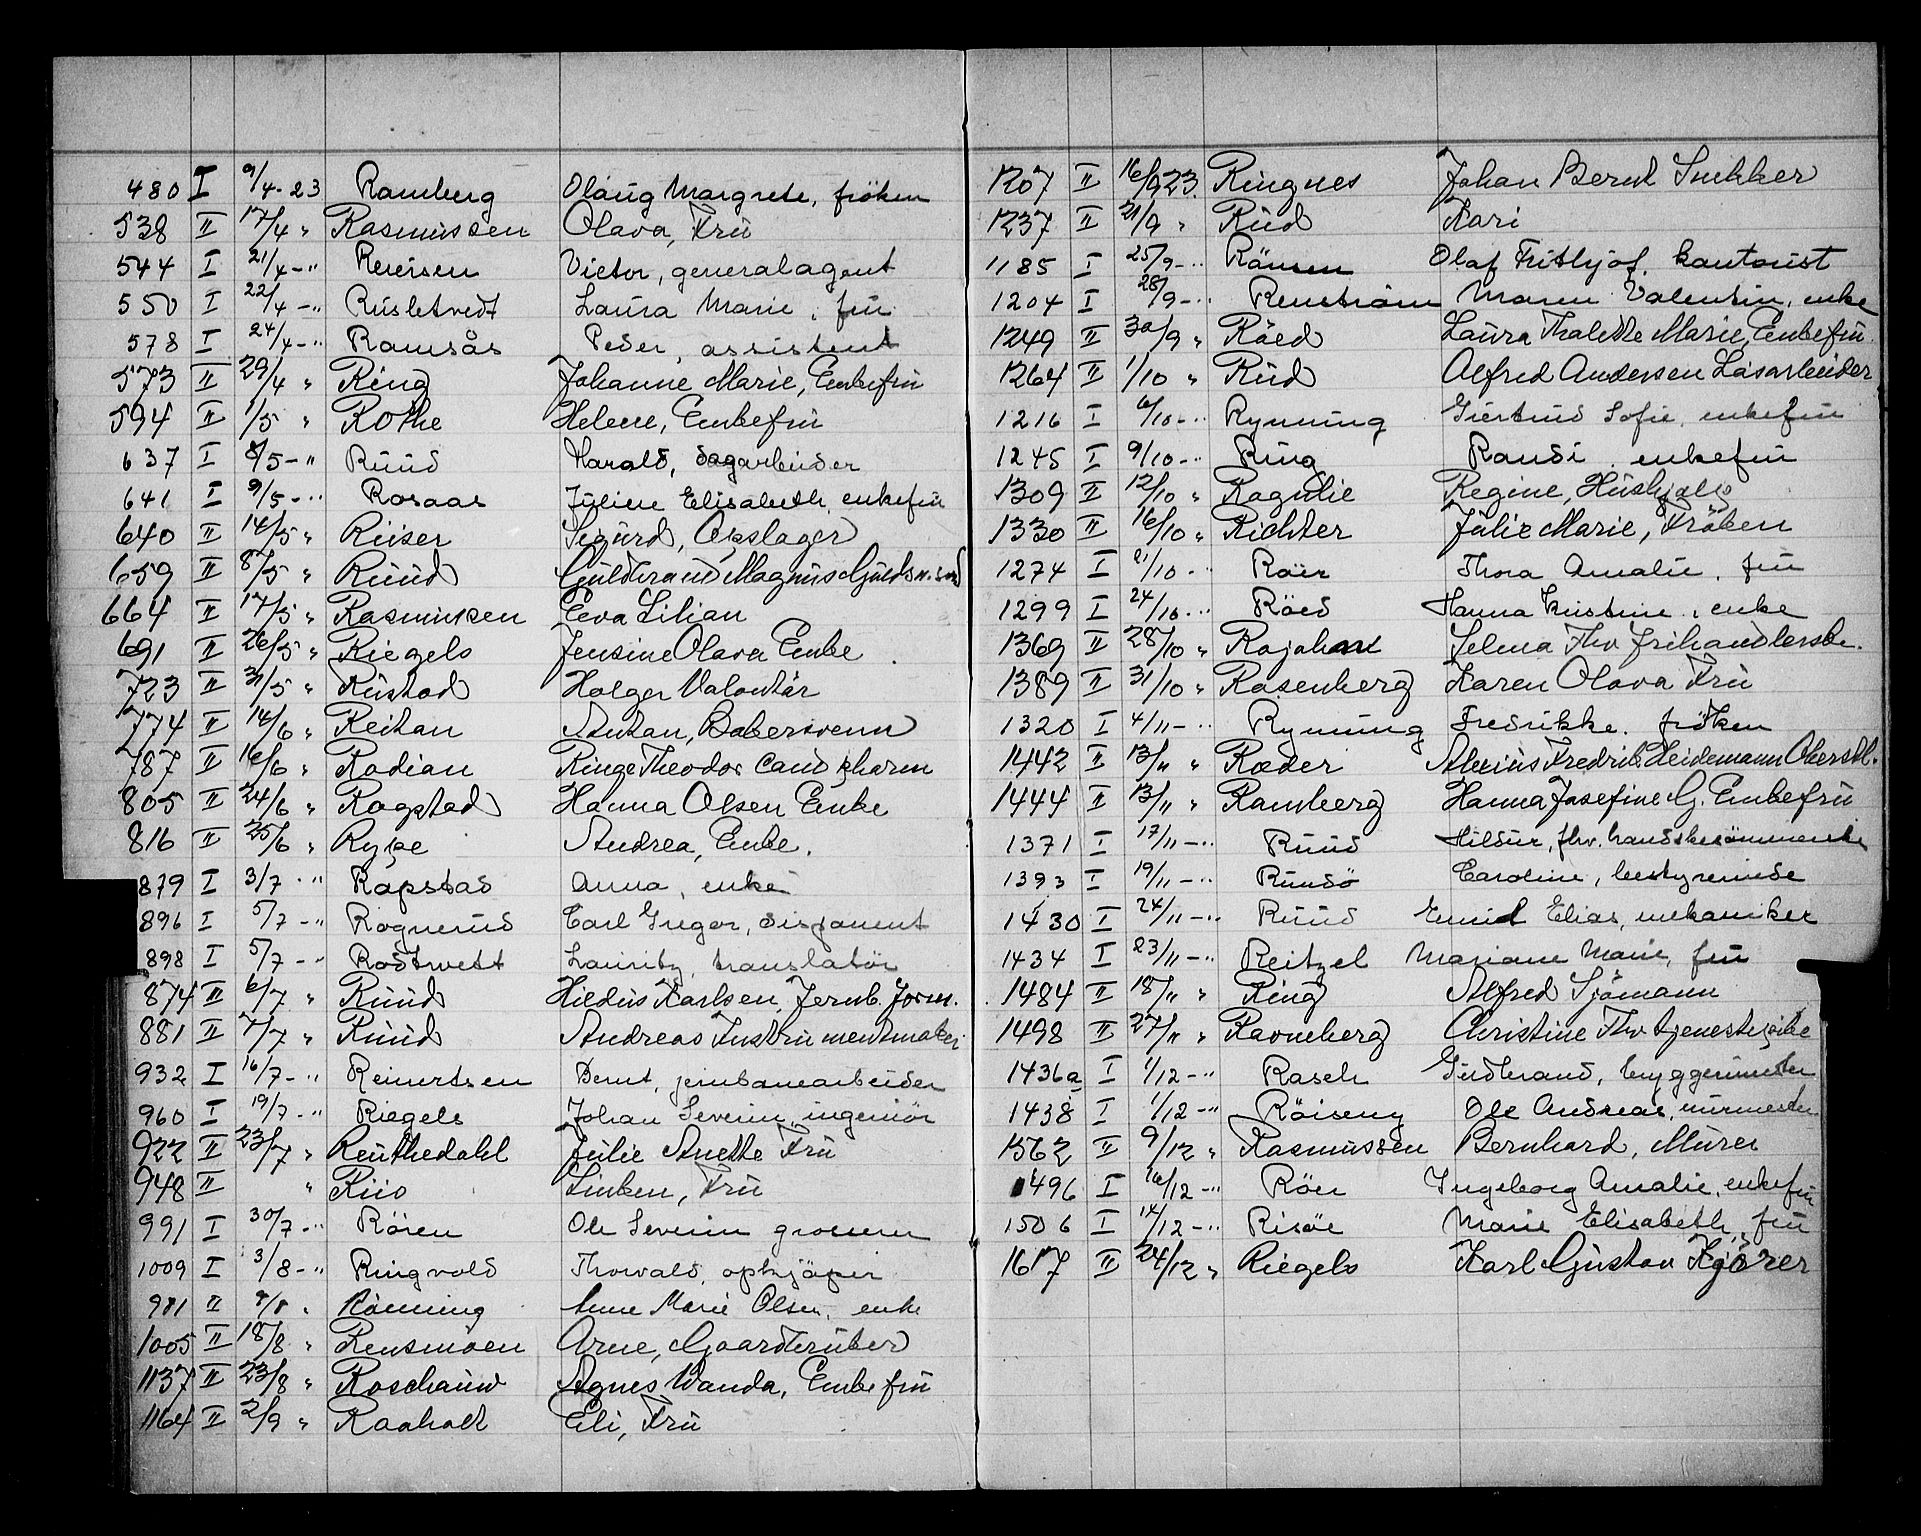 480 I 9/4-23 Ramberg Olaug Margrete, fröken
538 II 17/4 " Rasmussen Olava, Fru
544 I 21/4-" Reiersen Victor, generalagent
550 I 22/4-" Rusletvedt Laura Marie, fru
578 I 24/4-" Ramsås Peder, assistent
573 II 29/4 " Ring Johanne Marie, Enkefru
594 II 1/5 " Rothe Helene, Enkefru
637 I 8/5-" Ruud Harald, sagarbeider
641 I 9/5-" Rosaas Juline Elisabeth, enkefru
640 II 14/5 " Riiser Sigurd, Opslager
659 II 8/5 " Ruud Guldbrand Magnus
664 II 17/5 " Rasmussen Eva Lilian
691 II 26/5 " Riegels Jensine Olava Enke
723 II 31/5 " Rustad Holger Volontär
774 II 14/6 " Reitan Anton, Bakersvenn
787 II 16/6 " Rodian Ringe Theodor Cand pharm
805 II 24/6 " Rogstad Hanna Olsen Enke
816 II 25/6 " Rype Andrea, Enke.
879 I 3/7 -" Rapstad Anna, enke
896 I 5/7 -" Rognerud Carl Gregor, disponent
898 I 5/7 -" Rodtwett Lauritz, translatör
874 II 6/7 " Ruud Hildus Karlsen, Jernb. Form.
881 II 7/7 " Ruud Andreas Instrumentmaker
932 I 16/7-" Reinertsen Bernt, jernbanearbeider
960 I 19/7-" Riegels Johan Severin, ingeniör
922 II 23/7 " Reuthedahl Julie Anette Fru
948 II " Riis Linken, Fru
991 I 30/7-" Rören Ole Severin grosserer
1009 I 3/8-" Ringvold Thorvald, opkjöper
981 II 8/8 " Rönning Anne Marie Olsen, enke
1005 II 18/8 " Rensmoen Arne, Gaardbruker
1137 II 23/8 " Roschauw Agnes Wanda, Enkefru
1164 II 2/9 " Raaholt Eli, Fru
1207 II 16/9 23 Ringnes Johan Bernt Snekker
1237 II 21/9 " Rud Kari
1185 I 25/9-" Rönsen Olaf Frithjof, kontorist
1204 I 28/9-" Renström Maren Valentin, enke
1249 II 30/9 " Röed Laura Thalette Marie, Enkefru
1264 II 1/10 " Rud Alfred Andersen Løsarbeider
1216 I 6/10-" Rynning Giertrud Sofie, enkefru
1245 I 9/10-" Ring Randi, enkefru
1309 II 12/10 " Rognlie Regine, Hushjælp
1330 II 16/10 " Richter Julie Marie, Fröken
1274 I 21/10-" Röer Thora Amalie, fru
1299 I 24/10-" Röed Hanna Kristine, enke
1369 II 28/10 " Rojahn Selma Fhv frihandlerske.
1389 II 31/10 " Rosenberg Karen Olava Fru
1320 I 4/11-" Rynning Fredrikke, fröken
1442 II 13/11 " Roeder Alexius Fredrik Heidemann Oberstl.
1444 II 13/11 " Ramberg Hanna Josefine G. Enkefru
1371 I 17/11-" Ruud Hildur, fhv. handskesömmerske
1393 I 19/11-" Rundö Caroline, bestyrerinde
1430 I 24/11-" Ruud Emil Elias, mekaniker
1434 I 23/11-" Reitzel Mariane Marie, fru
1484 II 18/11 " Ring Alfred Sjömann
1498 II 27/11 " Ravneberg Christine Fhv tjenestepike
1436a I 1/12-" Rasch Gudbrand, byggmester
1438 I 1/12-" Röiseng Ole Andreas, murmester
1562 II 9/12 " Rasmussen Bernhard, Murer
1496 I 16/12-" Röer Ingeborg Amalie, enkefru
1506 I 14/12-" Risöe Marie Elisabeth, fru
1617 II 24/12 " Riegels Karl Gustav Kjörer